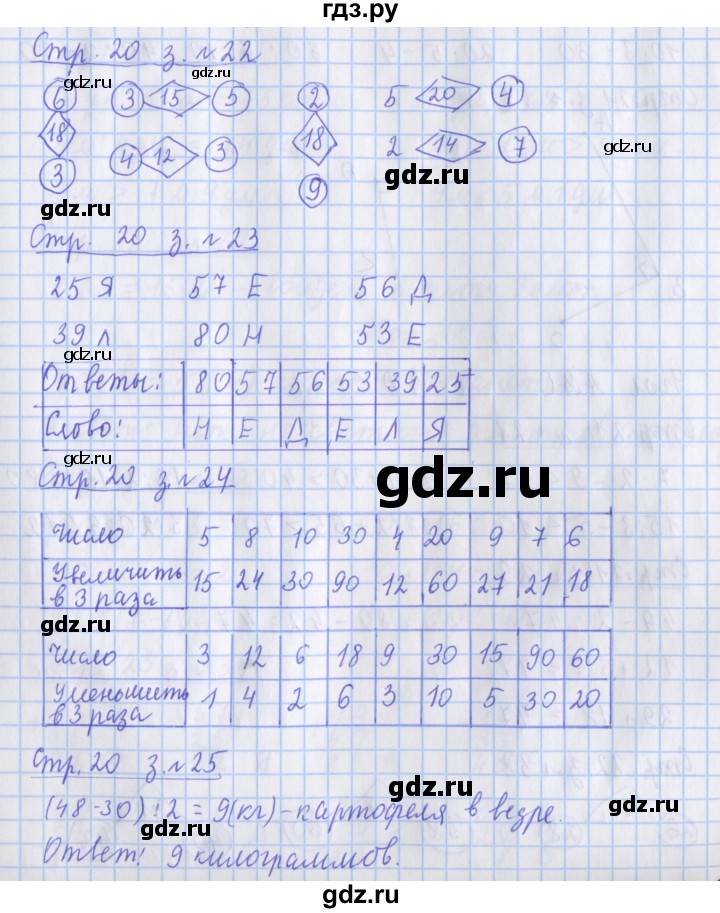 гдз.ру
Стр. 20 з. №22
gdz.ru
6 3 15 5 2 5 20 4
gdz.ru
18 4 12 3 18 2 14 7
gdz.ru
3 9
gdz.ru
gdz.ru
Стр. 20 з. №23
gdz.ru
25 Я 57 Е 56 Д
39 Л 80 Н 53 Е
gdz.ru
gdz.ru
Ответы: 80 57 56 53 39 25
Слово: Н Е Д Е Л Я
gdz.ru
Стр. 20 з. №24
gdz.ru
Число 5 8 10 30 4 20 9 7 6
Увеличить в 3 раза 15 24 30 90 12 60 27 21 18
gdz.ru
gdz.ru
Число 3 12 6 18 9 30 15 90 60
Уменьшить в 3 раза 1 4 2 6 3 10 5 30 20
gdz.ru
Стр. 20 з. №25
gdz.ru
(48-30):2=9(кг)-картофеля в ведре.
gdz.ru
gdz.ru
Ответ: 9 килограммов.
gdz.ru